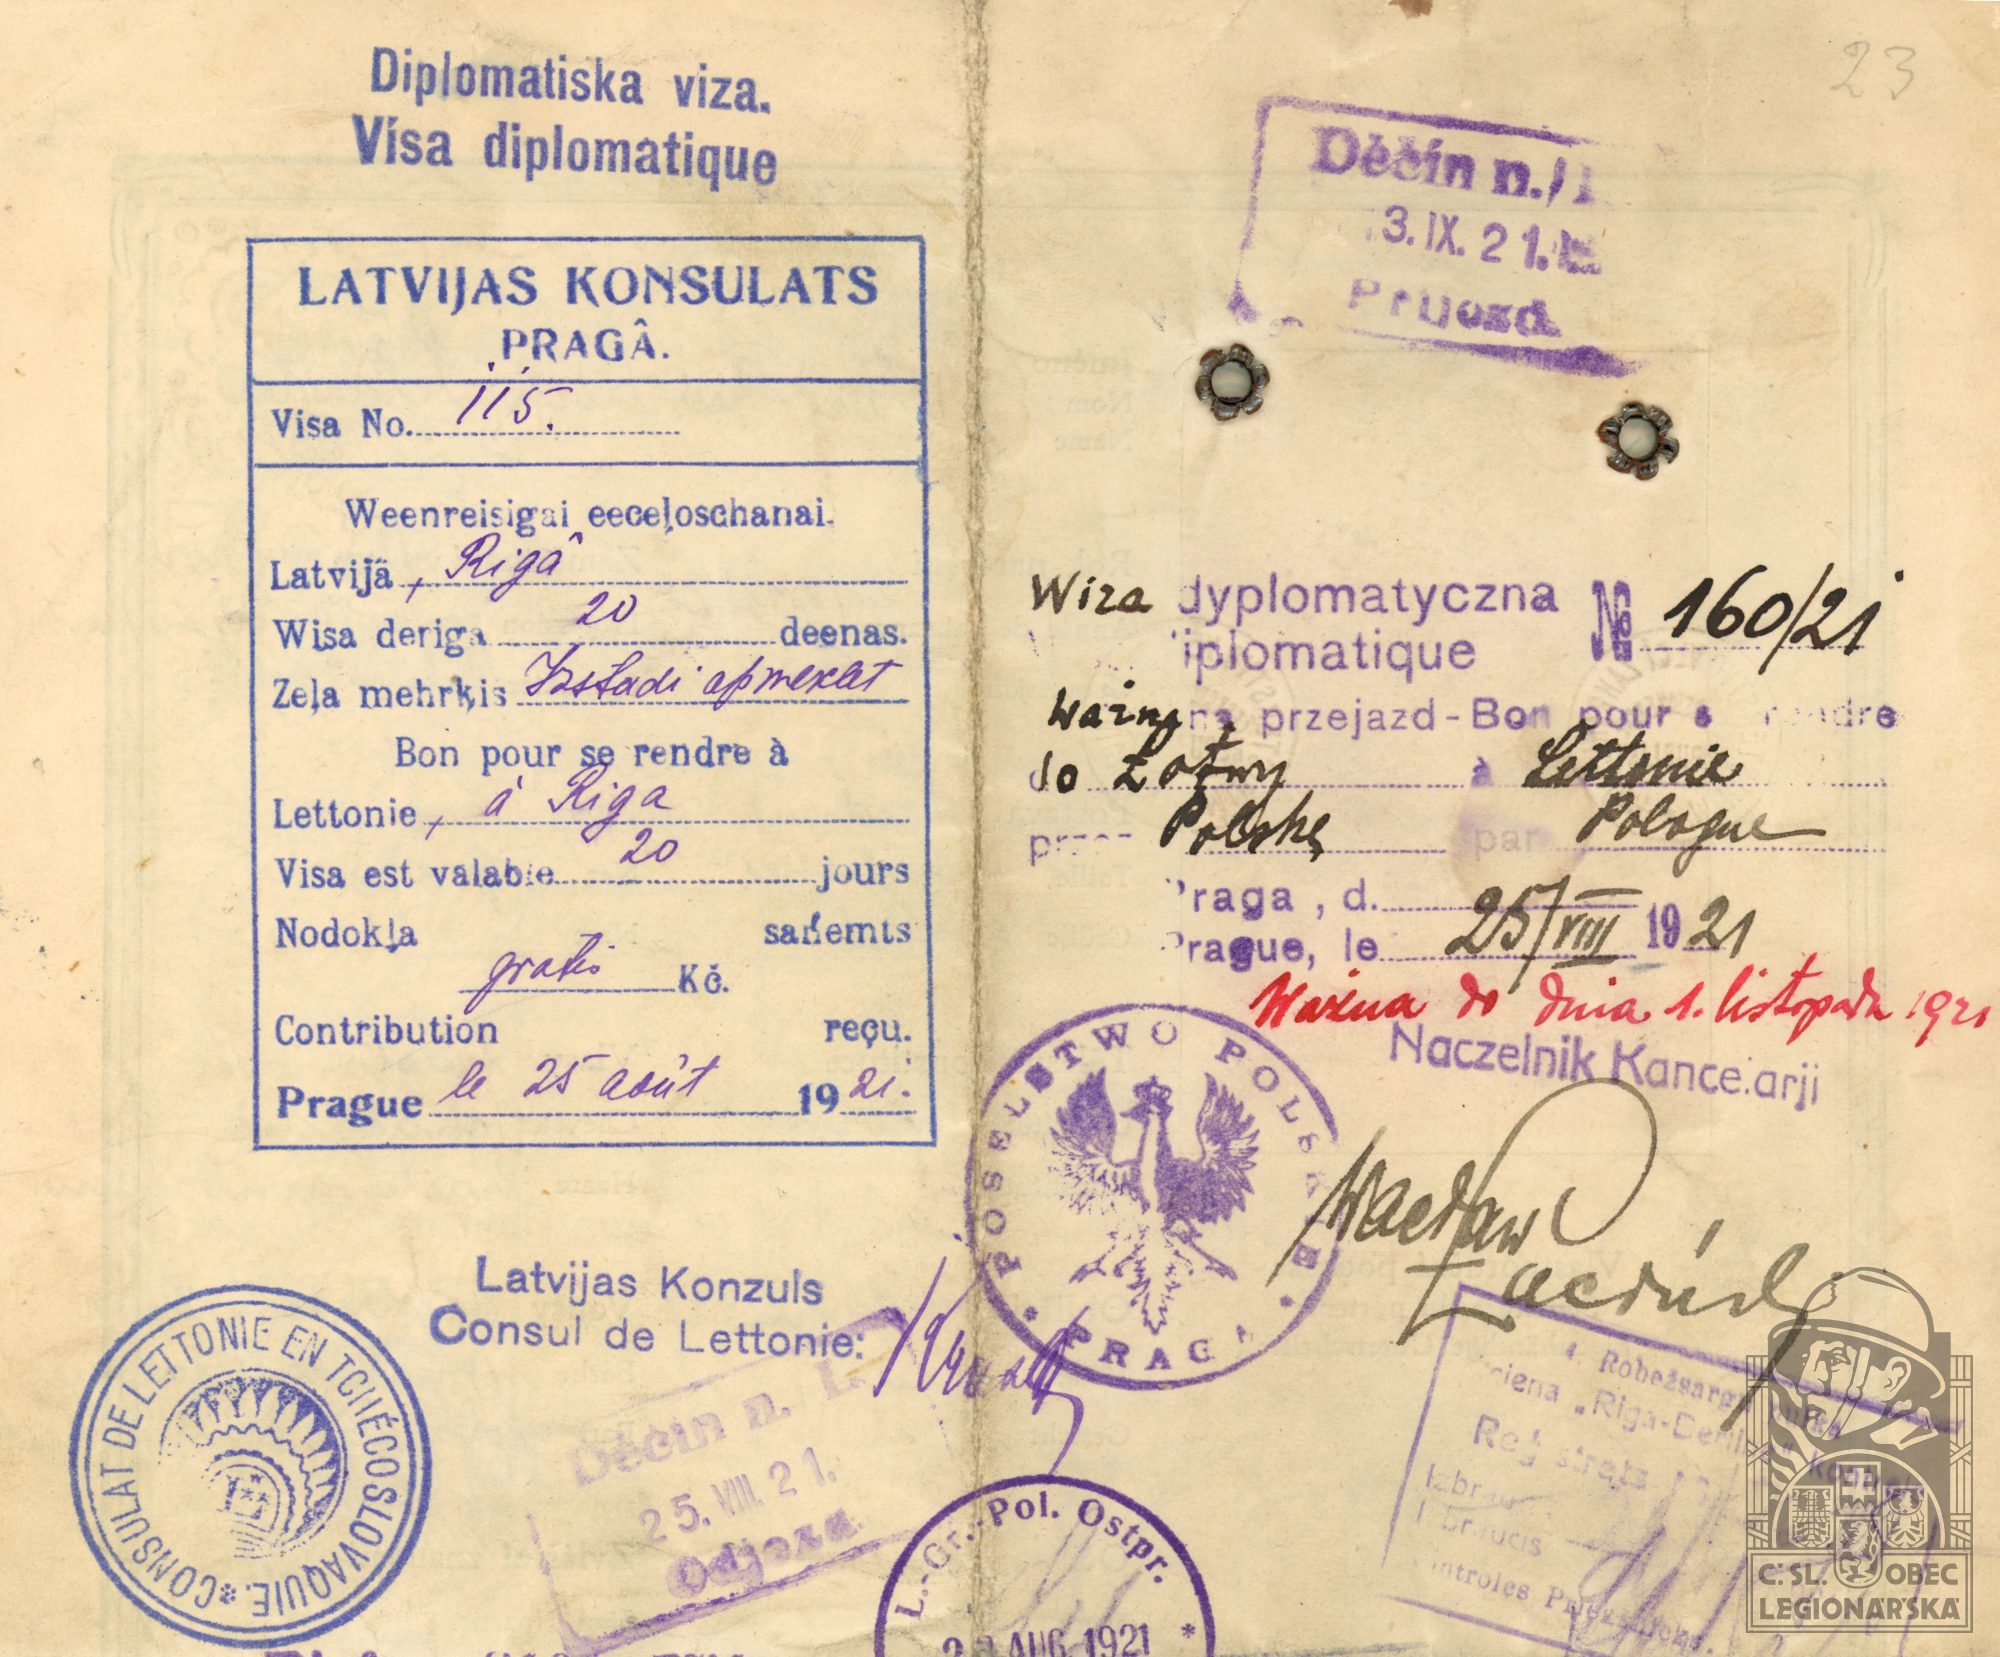 23
Diplomatiska viza.
Visa diplomatique
LATVIJAS KONSULATS
PRAGÂ.
Visa No. 115.
Weenreisigai eeceļoschanai.
Latvijā, Rigâ
Wisa deriga 20 deenas.
Zeļa mehrķis Izstadi apmeklet
Bon pour se rendre à
Lettonie, à Riga
Visa est valable 20 jours
Nodokļa saņemts
gratis Kč.
Contribution reçu.
Prague le 25 août 1921.
Latvijas Konzuls
Consul de Lettonie:
CONSULAT DE LETTONIE EN TCHÉCOSLOVAQUIE.
Děčín n.
25. VIII. 21.
Odjezd
Děčín n./L
3. IX. 21.
Příjezd
Wiza dyplomatyczna № 160/21
iplomatique
ważny na przejazd - Bon pour se rendre
do Łotwy à Lettonie
przez Polskę par Pologne
Praga, d.
Prague, le 25/VIII 1921
Ważna do dnia 1. listopada 1921
Naczelnik Kancelarji
Wacław
POSELSTWO POLSKIE
PRAGA
L.-Gr.-Pol. Ostpr.
AUG. 1921
Robežsarg
"Riga-Berl
Č. SL. OBEC
LEGIONÁŘSKÁ